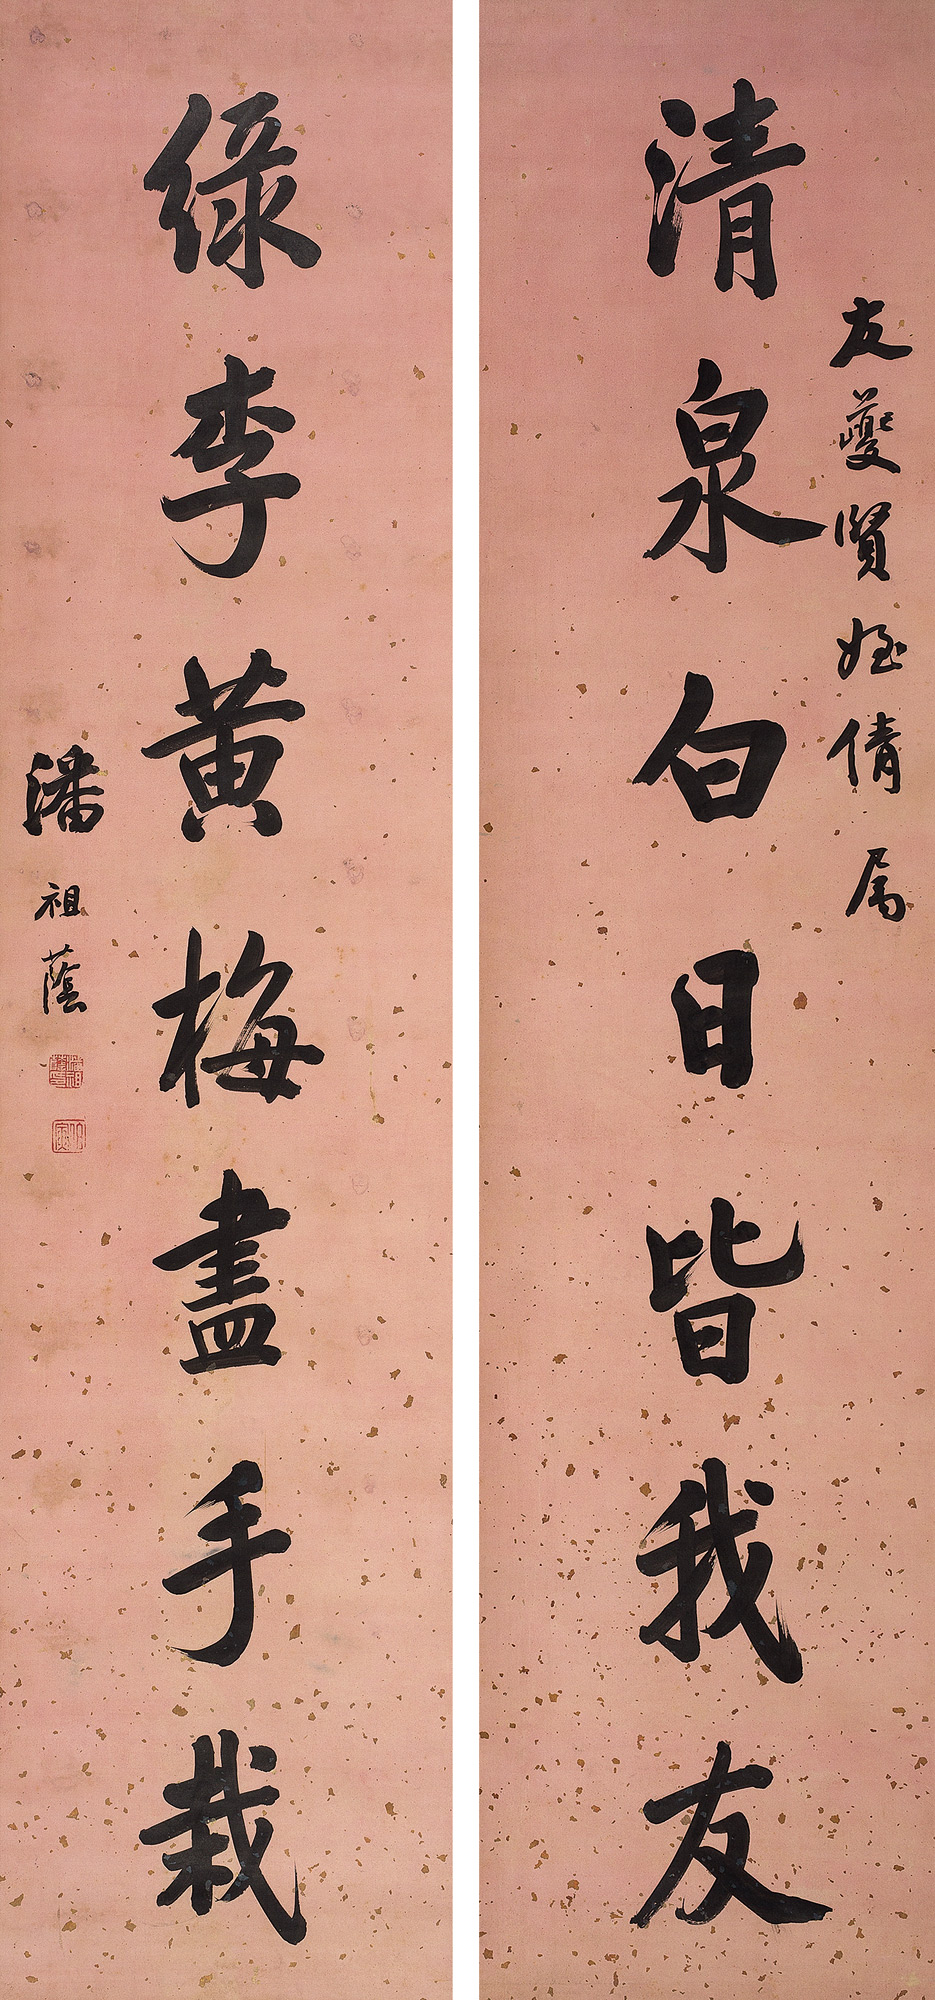 友夔賢姪倩属
清泉白日皆我友
綠李黃梅盡手栽
潘祖蔭